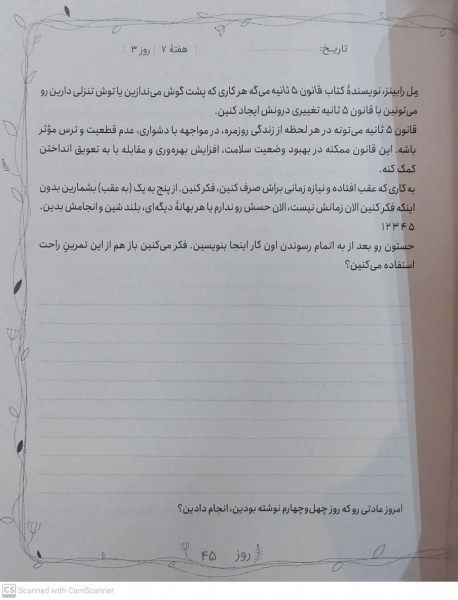 تاریخ: هفتهٔ ۷ | روز ۳ |
مِل رابینز، نویسندهٔ کتاب قانون ۵ ثانیه می‌گه هر کاری که پشت گوش می‌ندازین یا توش تنزلی دارین رو
می‌تونین با قانون ۵ ثانیه تغییری درونش ایجاد کنین.
قانون ۵ ثانیه می‌تونه در هر لحظه از زندگی روزمره، در مواجهه با دشواری، عدم قطعیت و ترس مؤثر
باشه. این قانون ممکنه در بهبود وضعیت سلامت، افزایش بهره‌وری و مقابله با به تعویق انداختن
کمک کنه.
به کاری که عقب افتاده و نیازه زمانی براش صرف کنین، فکر کنین. از پنج به یک (به عقب) بشمارین بدون
اینکه فکر کنین الان زمانش نیست، الان حسش رو ندارم یا هر بهانهٔ دیگه‌ای، بلند شین و انجامش بدین.
۱۲۳۴۵
حستون رو بعد از به اتمام رسوندن اون کار اینجا بنویسین. فکر می‌کنین باز هم از این تمرین راحت
استفاده می‌کنین؟
امروز عادتی رو که روز چهل‌وچهارم نوشته بودین، انجام دادین؟
روز ۴۵
CS Scanned with CamScanner